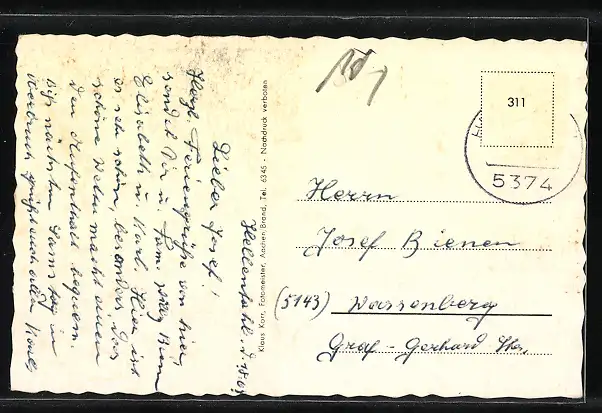 Hellenthal, d.
Lieber Josef!
Herzl. Feriengrüße von hier,
sendet Dir u. Fam.
Elisabeth u. Karl. Hier ist
es sehr schön, besonders das
schöne Wetter macht einen
den Aufenthalt bequem.
nächsten Samstag in
grüßt euch alle Karl
Klaus Korr, Fotomeister, Aachen-Brand, Tel. 6345 - Nachdruck verboten
311
5374
Herrn
Josef Bienen
(5143) Wassenberg
Graf-Gerhard Str.